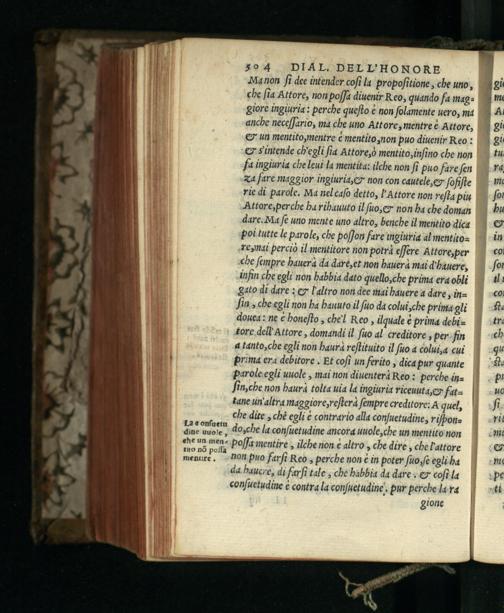 504 DIAL. DELL'HONORE
Ma non si dee intender così la propositione, che uno,
che sia Attore, non possa divenir Reo, quando fa mag-
giore ingiuria: perche questo è non solamente uero, ma
anche necessario, ma che uno Attore, mentre è Attore,
& un mentito, mentre è mentito, non puo divenir Reo:
& s'intende ch'egli sia Attore, ò mentito, insino che non
fa ingiuria che leui la mentita: ilche non si puo fare sen
za fare maggior ingiuria, & non con cautele, & sofiste
rie di parole. Ma nel caso detto, l'Attore non resta piu
Attore, perche ha rihauuto il suo, & non ha che doman
dare. Ma se uno mente uno altro, benche il mentito dica
poi tutte le parole, che posson fare ingiuria al mentito-
re, mai perciò il mentitore non potrà essere Attore, per
che sempre hauerà da dare, et non hauerà mai d'hauere,
infin che egli non habbia dato quello, che prima era obli
gato di dare: & l'altro non dee mai hauere a dare, in-
fin, che egli non ha hauuto il suo da colui, che prima gli
douea: ne è honesto, che'l Reo, ilquale è prima debi-
tore dell'Attore, domandi il suo al creditore, per fin
a tanto, che egli non haurà restituito il suo a colui, a cui
prima era debitore. Et così un ferito, dica pur quante
parole egli uuole, mai non diuenterà Reo: perche in-
fin, che non haurà tolta uia la ingiuria riceuuta, & fat-
tane un'altra maggiore, resterà sempre creditore: A quel,
che dite, chè egli è contrario alla consuetudine, rispon-
do, che la consuetudine ancora uuole, che un mentito non
possa mentire, ilche non è altro, che dire, che l'attore
non puo farsi Reo, perche non è in poter suo, se egli ha
da hauere, di farsi tale, che habbia da dare. & così la
consuetudine è contra la consuetudine, pur perche la ra
gione
La consuetu
dine uuole,
che un men-
tito nō possa
mentire.